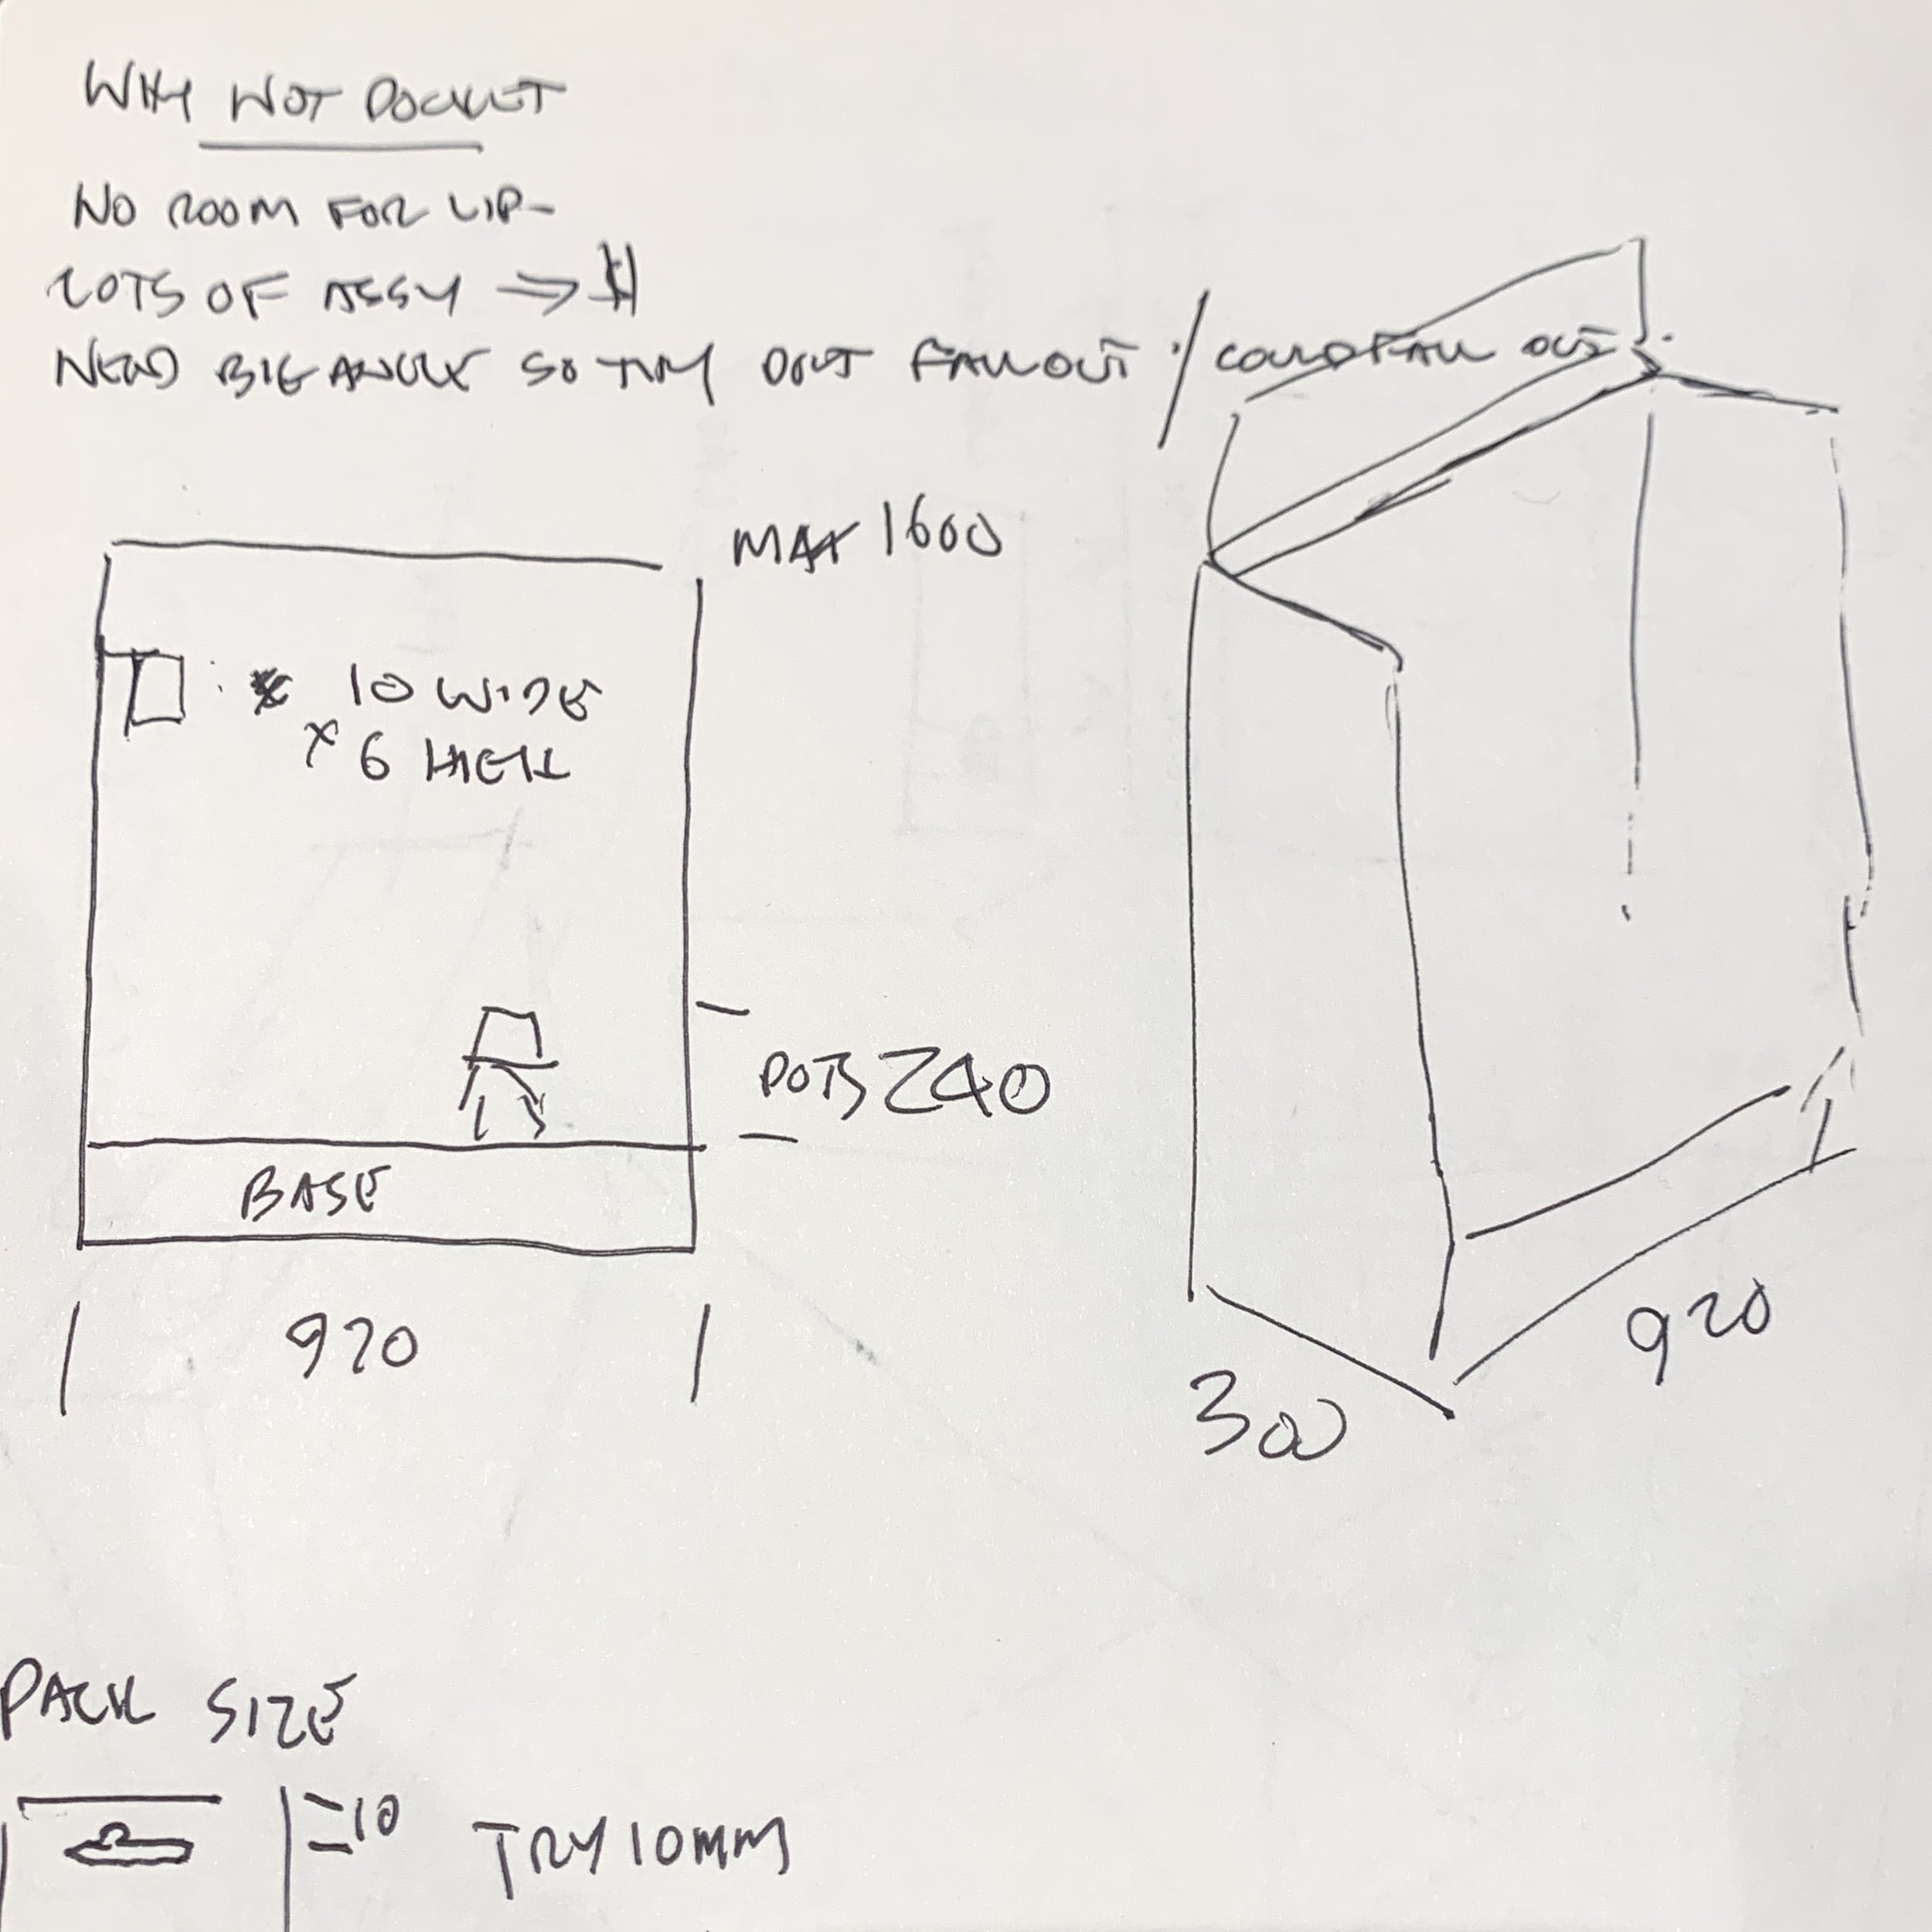 WHY NOT POCKET
NO ROOM FOR LIP-
LOTS OF ASSY ⇒ $
NEED BIG ANGLE SO THEY DON'T FALL OUT / COULD FALL OUT.
MAX 1600
10 WIDE
x 6 HIGH
POTS 240
BASE
920
300
920
PACK SIZE
10 TRY 10MM